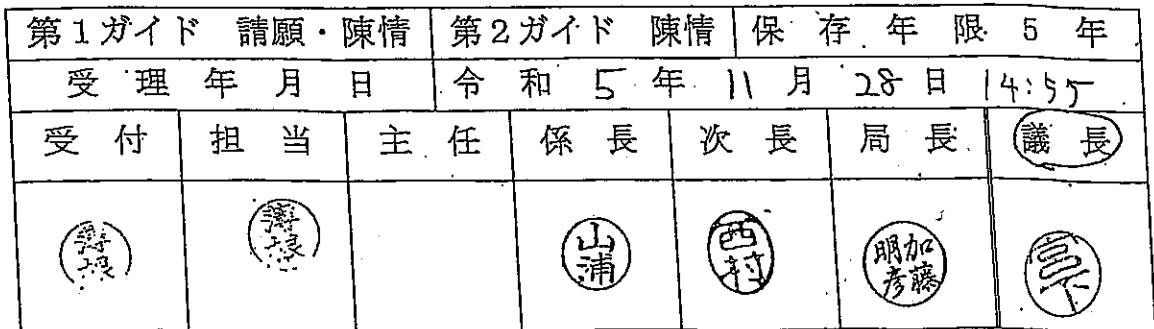 第1ガイド 請願・陳情 第2ガイド 陳情 保存年限 5年
受理年月日 令和5年11月28日 14:55
受付 担当 主任 係長 次長 局長 議長
山浦 西村 加藤明彦 宮下